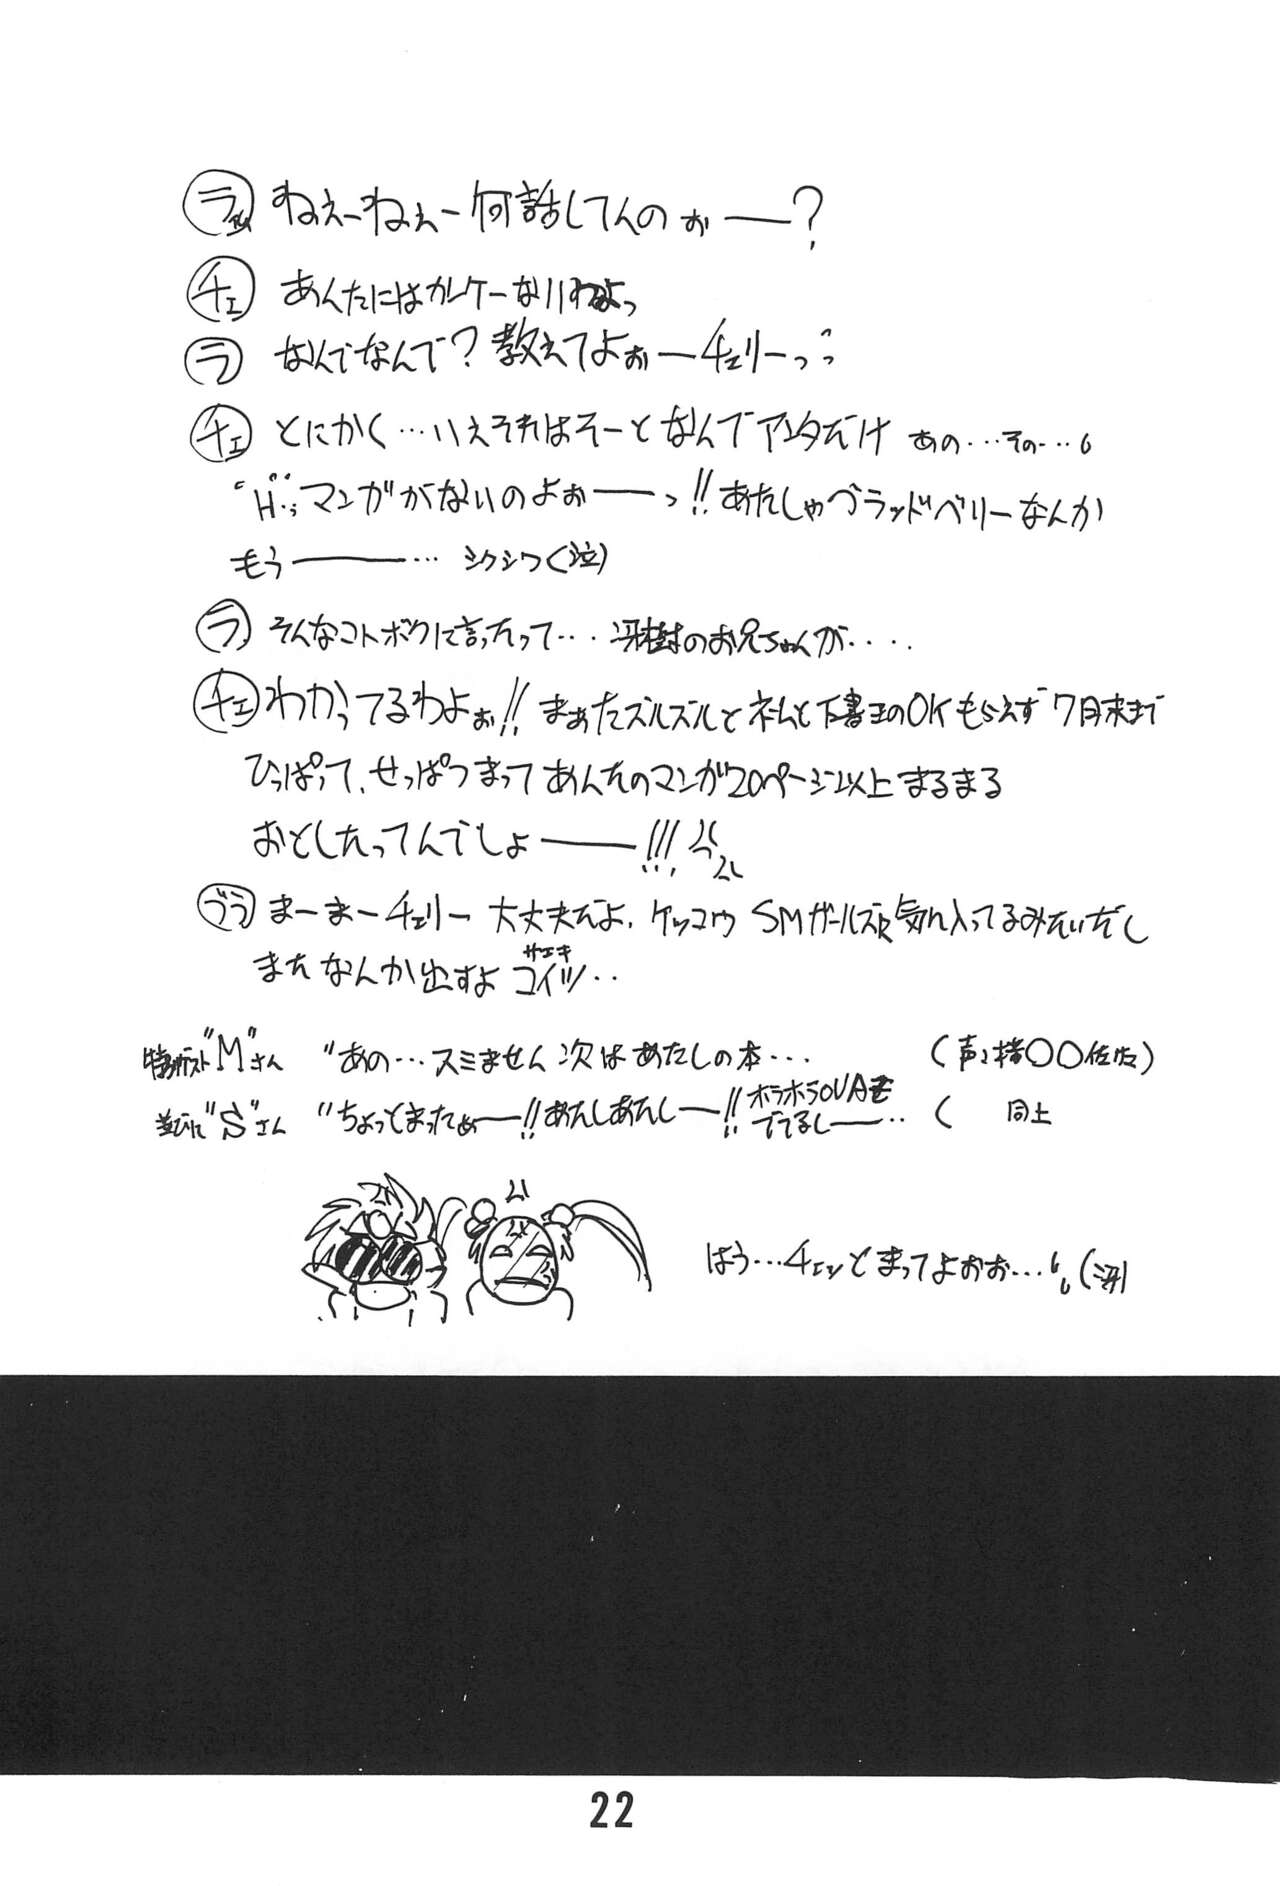 ラ ねえーねぇー何話してんのぉー?
チェ あんたにはカンケーないわよっ
ラ なんでなんで?教えてよぉーチェリーっ
チェ とにかく…いえそれはそーとなんでアンタだけ あの…その…
"H"マンガがないのよぉーっ!!あたしゃブラッドベリーなんか
もうー… シクシク(泣)
ラ そんなコトボクに言ったって…冴樹のお兄ちゃんが‥‥
チェ わかってるわよぉ!!まぁたズルズルとネームと下書きのOKもらえず7月末まで
ひっぱって、せっぱつまってあんたのマンガ20ページ以上まるまる
おとしたってんでしょー!!!
ブラ まーまーチェリー 大丈夫だよ、ケッコウSMガールズ気に入ってるみたいだし
またなんか出すよコイツ‥
サエキ
特別ゲスト"M"さん "あの…スミません次はあたしの本… (声:横〇〇佐
並びに"S"さん "ちょっとまったぁー!!あたしあたしー!!ホラホラOVAも
でてるしー‥ ( 同上
はう…チェッとまってよおお…(冴)
22